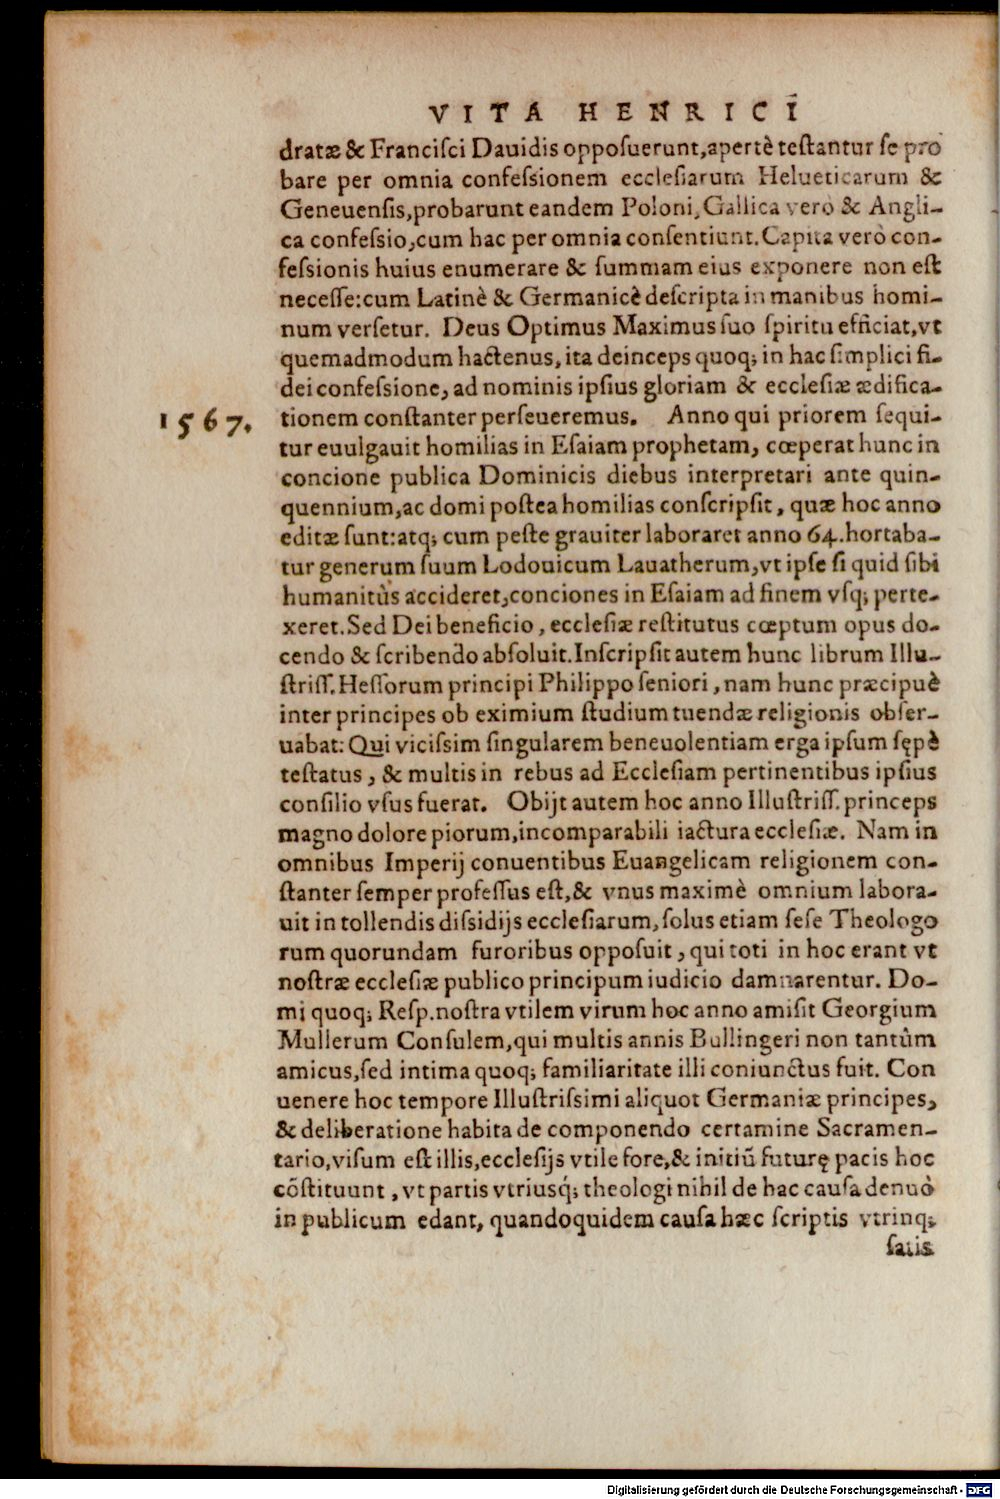 VITA HENRICI
dratæ & Franciſci Dauidis oppoſuerunt,apertè teſtantur ſe pro
bare per omnia confeſsionem eccleſiarum Helueticarum &
Geneuenſis,probarunt eandem Poloni,Gallica verò & Angli-
ca confeſsio,cum hac per omnia conſentiunt.Capita verò con-
feſsionis huius enumerare & ſummam eius exponere non eſt
neceſſe:cum Latinè & Germanicè deſcripta in manibus homi-
num verſetur. Deus Optimus Maximus ſuo ſpiritu efficiat,vt
quemadmodum hactenus,ita deinceps quoq; in hac ſimplici fi-
dei confeſsione,ad nominis ipſius gloriam & eccleſiæ ædifica-
1567.
tionem conſtanter perſeueremus. Anno qui priorem ſequi-
tur euulgauit homilias in Eſaiam prophetam, cœperat hunc in
concione publica Dominicis diebus interpretari ante quin-
quennium,ac domi poſtea homilias conſcripſit, quæ hoc anno
editæ ſunt:atq; cum peſte grauiter laboraret anno 64.hortaba-
tur generum ſuum Lodouicum Lauatherum,vt ipſe ſi quid ſibi
humanitùs accideret,conciones in Eſaiam ad finem vſq; perte-
xeret.Sed Dei beneficio, eccleſiæ reſtitutus cœptum opus do-
cendo & ſcribendo abſoluit.Inſcripſit autem hunc librum Illu-
ſtriſſ.Heſſorum principi Philippo ſeniori, nam hunc præcipuè
inter principes ob eximium ſtudium tuendæ religionis obſer-
uabat: Qui viciſsim ſingularem beneuolentiam erga ipſum ſępè
teſtatus, & multis in rebus ad Eccleſiam pertinentibus ipſius
conſilio vſus fuerat. Obijt autem hoc anno Illuſtriſſ.princeps
magno dolore piorum,incomparabili iactura eccleſiæ. Nam in
omnibus Imperij conuentibus Euangelicam religionem con-
ſtanter ſemper profeſſus eſt,& vnus maximè omnium labora-
uit in tollendis diſsidijs eccleſiarum,ſolus etiam ſeſe Theologo
rum quorundam furoribus oppoſuit, qui toti in hoc erant vt
noſtræ eccleſiæ publico principum iudicio damnarentur. Do-
mi quoq; Reſp.noſtra vtilem virum hoc anno amiſit Georgium
Mullerum Conſulem,qui multis annis Bullingeri non tantùm
amicus,ſed intima quoq; familiaritate illi coniunctus fuit. Con
uenere hoc tempore Illuſtriſsimi aliquot Germaniæ principes,
& deliberatione habita de componendo certamine Sacramen-
tario,viſum eſt illis,eccleſijs vtile fore,& initiũ futurę pacis hoc
cõſtituunt, vt partis vtriusq́; theologi nihil de hac cauſa denuò
in publicum edant, quandoquidem cauſa hæc ſcriptis vtrinq;
ſatis
Digitalisierung gefördert durch die Deutsche Forschungsgemeinschaft - DFG